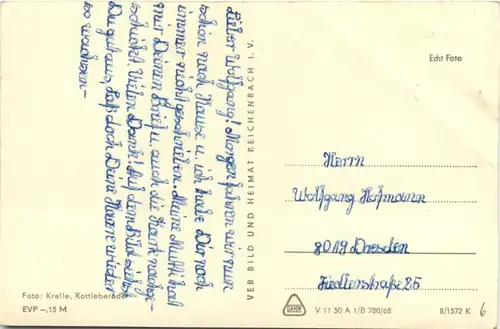 Lieber Wolfgang! Morgen fahren wir nun
schon nach Hause u. ich habe Dir noch
immer nicht geschrieben. Meine Mutti hat
mir Deinen Brief u. auch die Karte nachge-
schickt. Vielen Dank! Auf dem Bild siehst
Du gut aus, laß doch Deine Haare wieder
so wachsen-
Foto: Krelle, Rottleberode
EVP –,15 M
VEB BILD UND HEIMAT REICHENBACH I. V.
Echt Foto
Herrn
Wolfgang Hofmann
8019 Dresden
Fiedlerstraße 25
V 11 50 A 1/B 780/68
8/1572 K
6